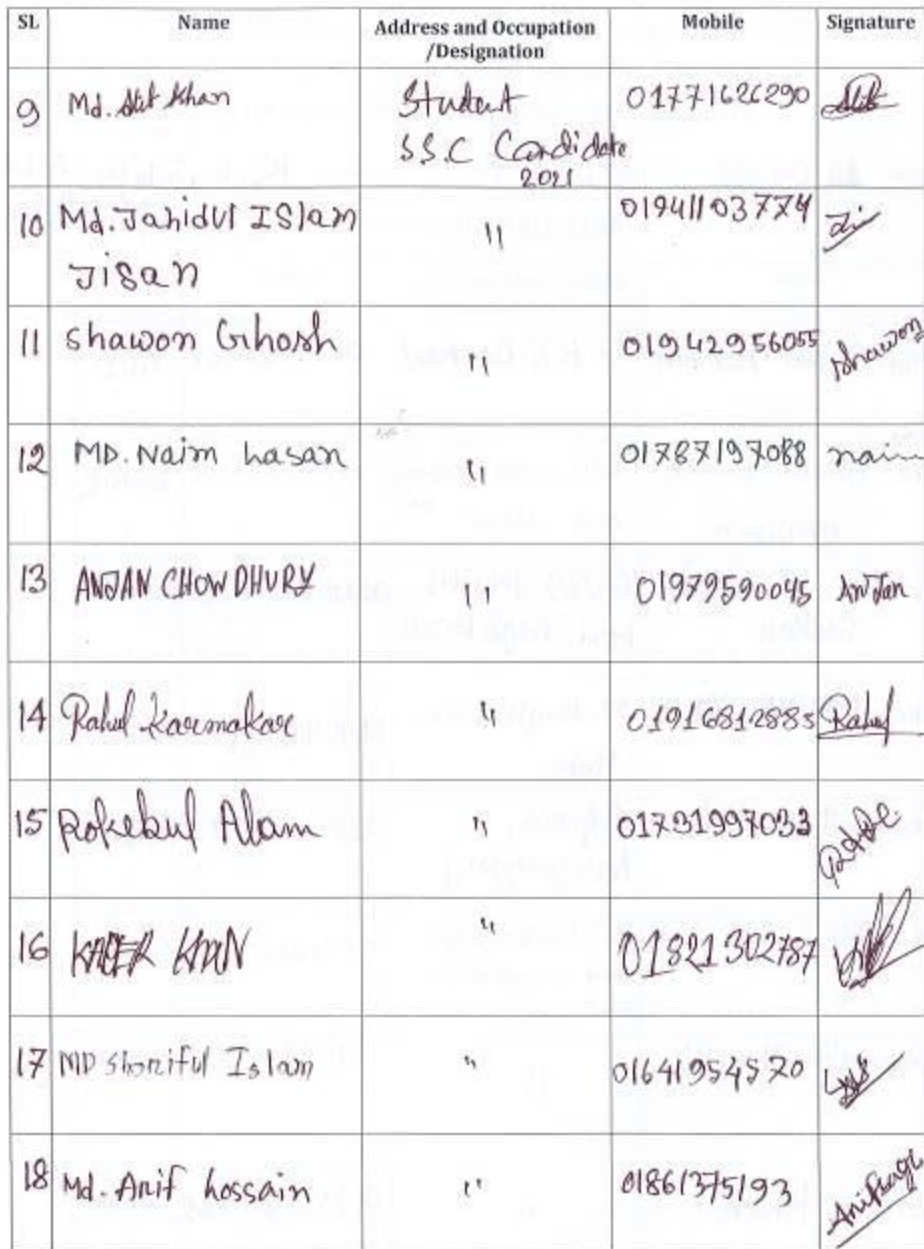 SL Name Address and Occupation /Designation Mobile Signature
9 Md. Khan Student 01771626290
S.S.C Candidate
2021
10 Md. Jahidul Islam " 01941103774
Jisan
11 Shawon Ghosh " 01942956055 Shawon
12 MD. Naim hasan " 01787197088 naim
13 ANJAN CHOWDHURY " 01979590045 Anjan
14 Rahul Karmakar " 01916812885 Rahul
15 Rokebul Alam " 01731997033
16 KADER KHAN " 01821302787
17 MD Shoriful Islam " 01641954570
18 Md. Arif hossain " 01861375193